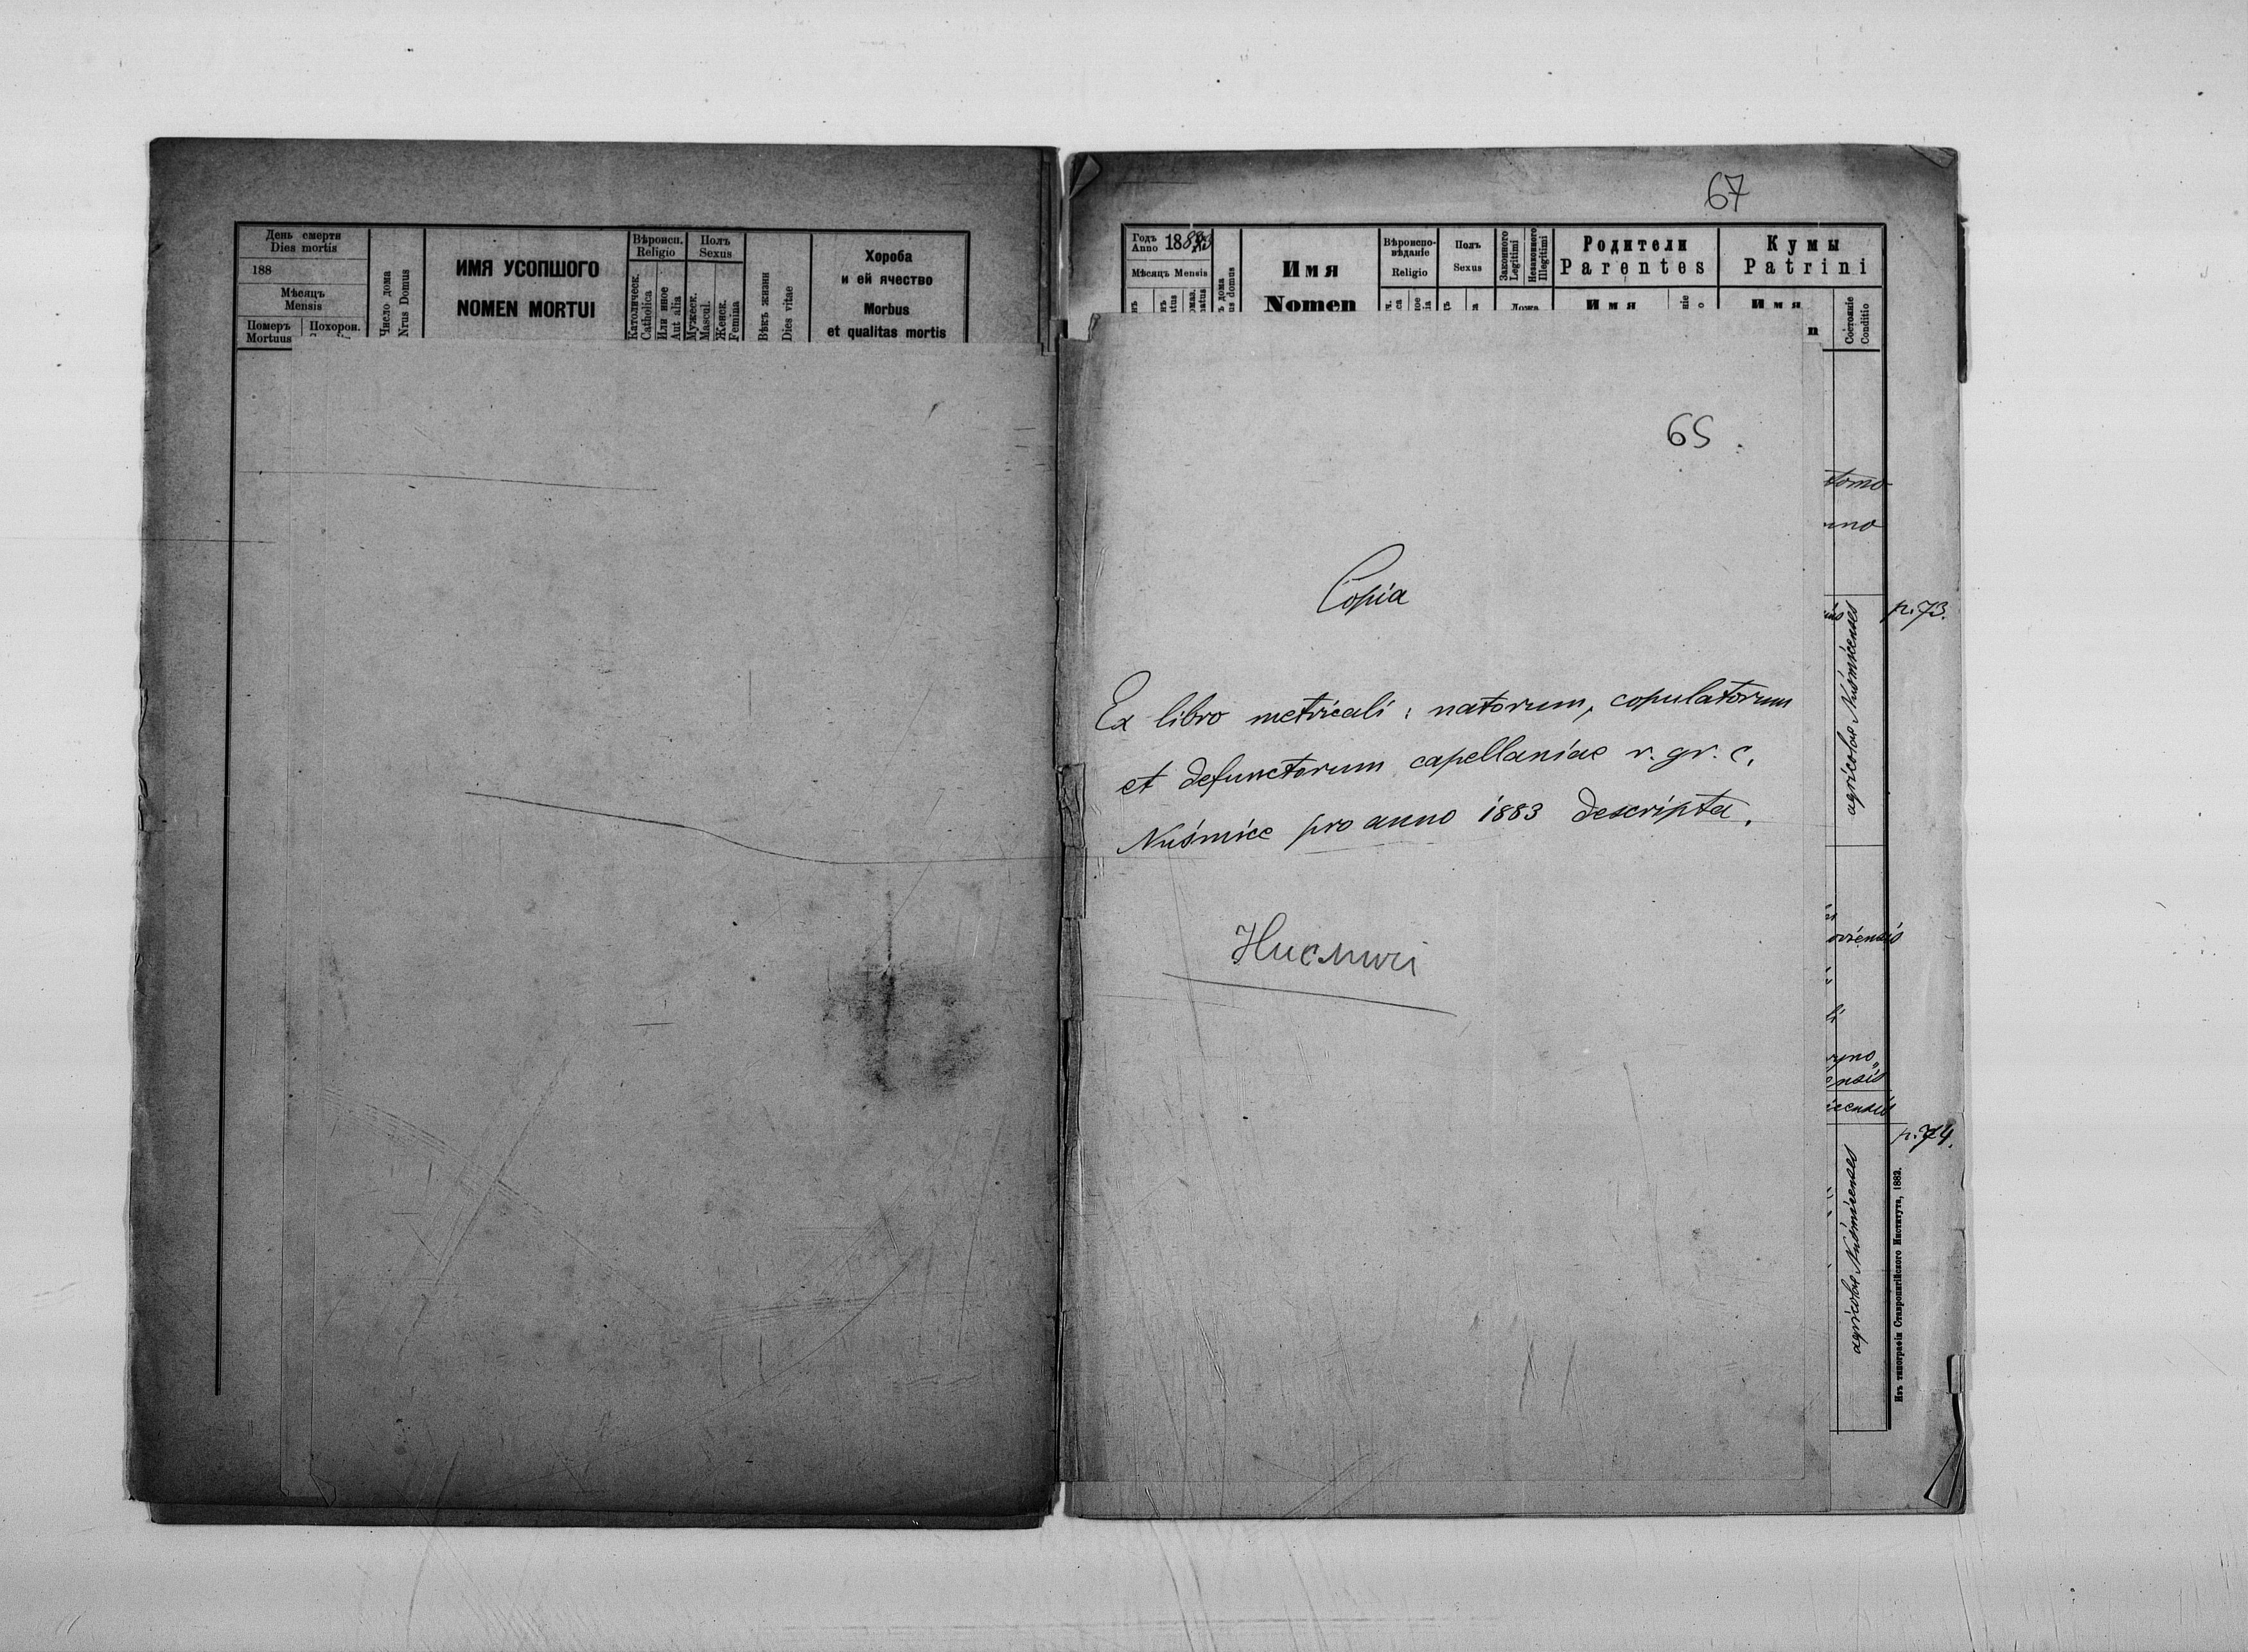 День смерти
Dies mortis
188
Мѣсяцъ
Mensis
Померъ
Mortuus
Похорон.
Число дома
Nrus Domus
ИМЯ УСОПШОГО
NOMEN MORTUI
Вѣроисп.
Religio
Католическ.
Catholica
Или иное
Aut alia
Полъ
Sexus
Мужеск.
Mascul.
Женск.
Femina
Вѣкъ жизни
Dies vitae
Хороба
и ей ячество
Morbus
et qualitas mortis
67
Годъ
Anno 1883
Мѣсяцъ Mensis
Имя
Nomen
Вѣроиспо-
вѣданіе
Religio
Полъ
Sexus
Законного
Legitimi
Незаконного
Illegitimi
Родители
Parentes
Имя
Кумы
Patrini
Имя
Состояніе
Conditio
65.
Copia
Ex libro metricali: natorum, copulatorum
et defunctorum capellaniae r. gr. c.
Nuśmice pro anno 1883 descripta.
Нисмичі
p. 73.
agricolae Nuśmicenses
p. 74.
agricolae Nuśmicenses
Изъ типографіи Ставропигійского Института, 1883.